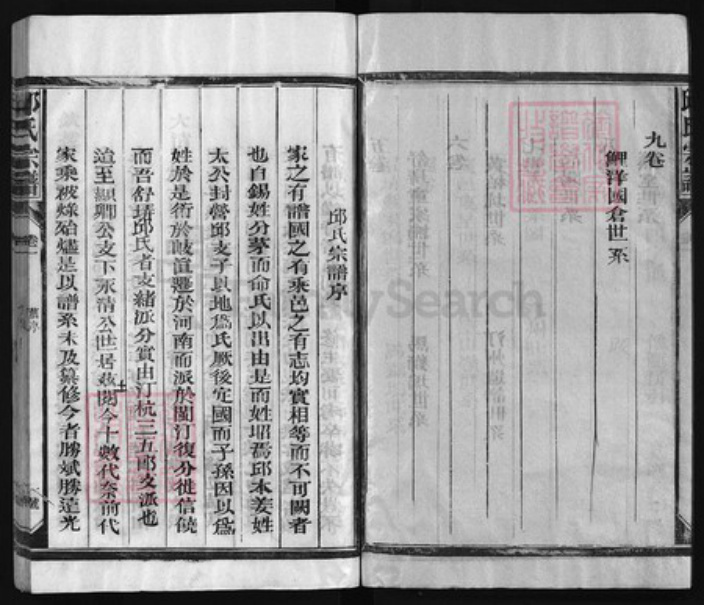 九卷
鯉洋國倉世系
邱氏宗譜序
家之有譜國之有乘邑之有志均實相等而不可闕者
也自錫姓分茅而命氏以出由是而姓昭焉邱本姜姓
太公封營邱支子以地為氏厥後定國而子孫因以為
姓於是衍於岐置遷於河南而派於閩汀復分徙信饒
而吾舒塝邱氏者支緒派分實由汀杭三五郎支派也
迨至顯卿公支下永清公世居茲閱今十數代奈前代
家乘被燬殆燼是以譜系未及纂修今者勝斌勝達光
邱氏宗譜
卷一
FamilySearch